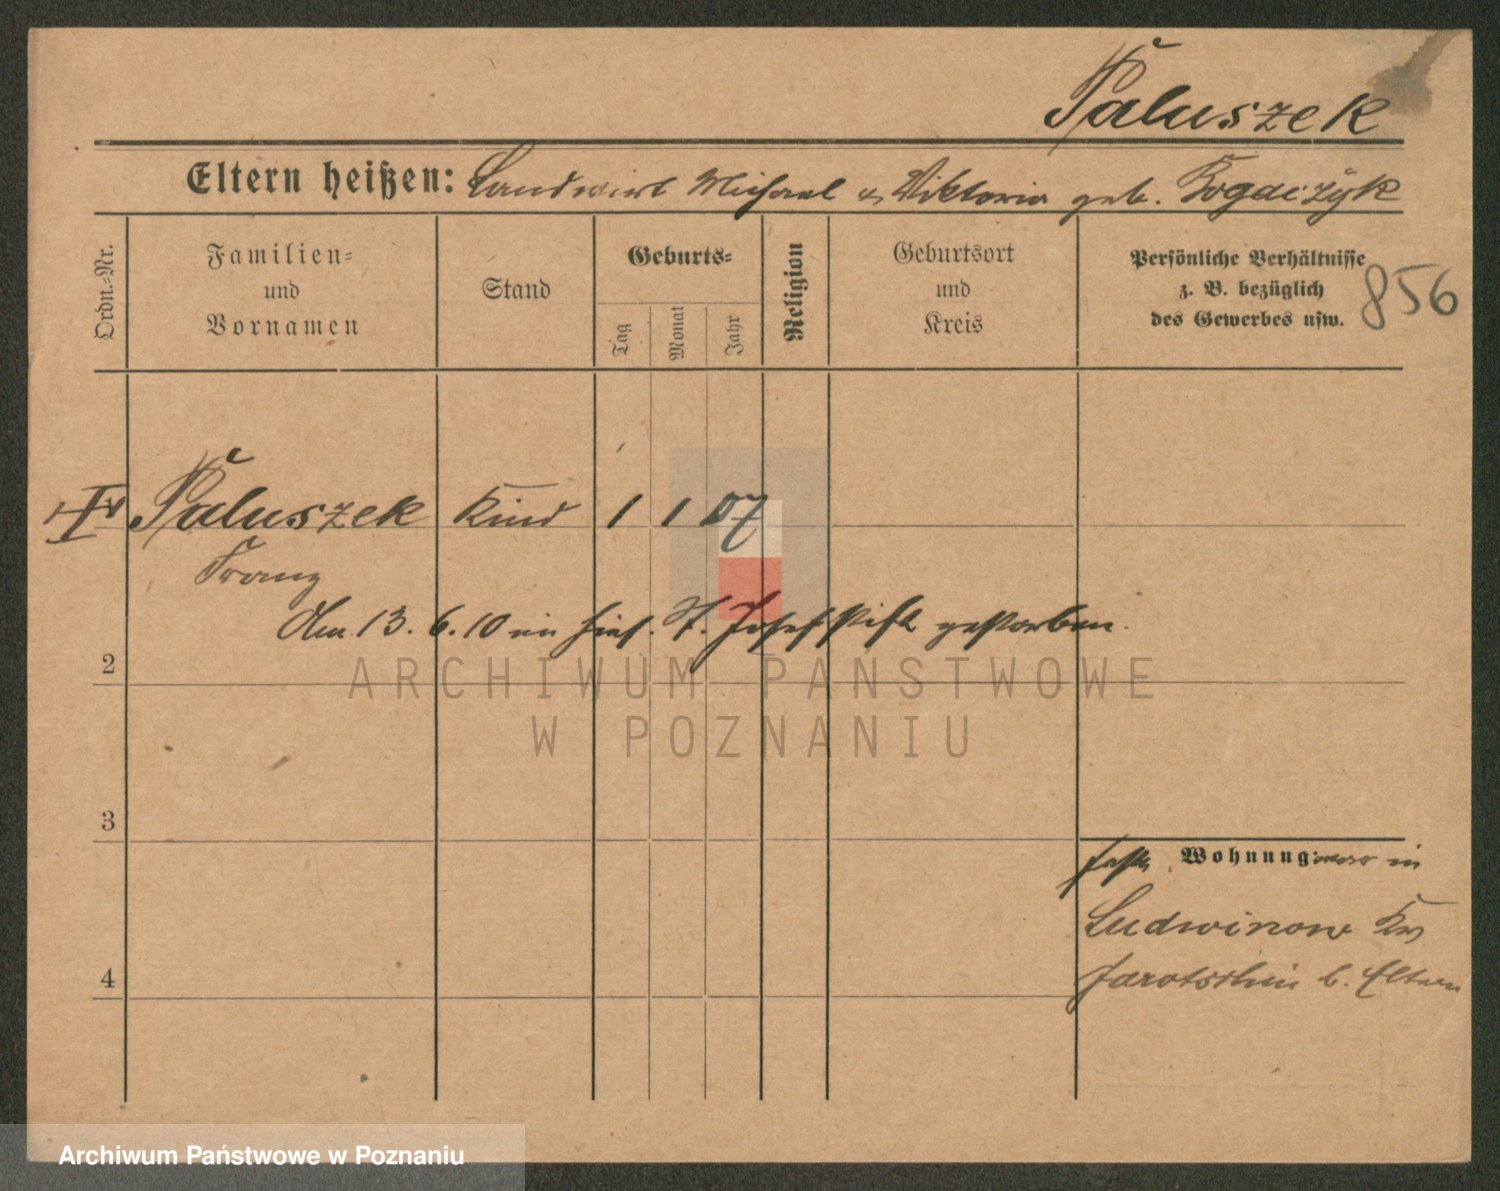 Paluszek
Eltern heißen: Landwirt Michael u. Viktoria geb. Rogaczyk
Ordn.-Nr.
Familien- und Vornamen
Stand
Geburts-
Tag
Monat
Jahr
Religion
Geburtsort und Kreis
Persönliche Verhältnisse
z. B. bezüglich
des Gewerbes usw.
856
Paluszek Kind 1 1 07
Franz
Am 13. 6. 10 im hies. St. Josefstift gestorben.
2
3
4
Wohnung: in
Ludwinow Krs
Jarotschin b. Eltern
ARCHIWUM PAŃSTWOWE
W POZNANIU
Archiwum Państwowe w Poznaniu